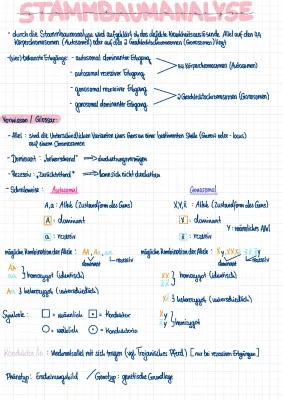 STAMMBAUMANALYSE
- durch die Stammbaumanalyse wird aufgeklärt ob das defekte Krankheitsauslösende Allel auf den 44
Körperchromosomen (Autosomen) oder auf den 2 Geschlechtschromosomen (Gonosomen) liegt
- autosomal dominanter Erbgang
- autosomal rezessiver Erbgang
44 Körperchromosomen (Autosomen)
- gonosomal rezessiver Erbgang
- gonosomal dominanter Erbgang
2 Geschlechtschromosomen (Gonosomen)
Vorwissen / Glossar:
- Allel : sind die Unterschiedlichen Varianten eines Gens an einer bestimmten Stelle (Genort oder - locus)
auf einem Chromosomen
- Dominant :
- Rezessiv : "Zurücktretend"
- Schreibweise : Autosomal Gonosomal
A, a : Allele (Zustandsform des Gens)
: Allele (Zustandsform des Gens)
A : dominant
: dominant
a : rezessiv
: rezessiv
Y : männliches Allel
mögliche Kombination der Allele : AA, Aa, aa
mögliche Kombination der Allele :
dominant rezessiv
dominant rezessiv
AA
aa
homozygot (identisch)
homozygot (identisch)
Aa } heterozygot (unterschiedlich)
} heterozygot (unterschiedlich)
Symbole : □ = männlich = Konduktor
○ = weiblich = Konduktorin
} hemizygot
Konduktor/in : Merkmalsallel mit sich tragen (vgl. Trojanisches Pferd) [nur bei rezessiven Erbgängen]
Phänotyp : Erscheinungsbild / Genotyp : genetische Grundlage